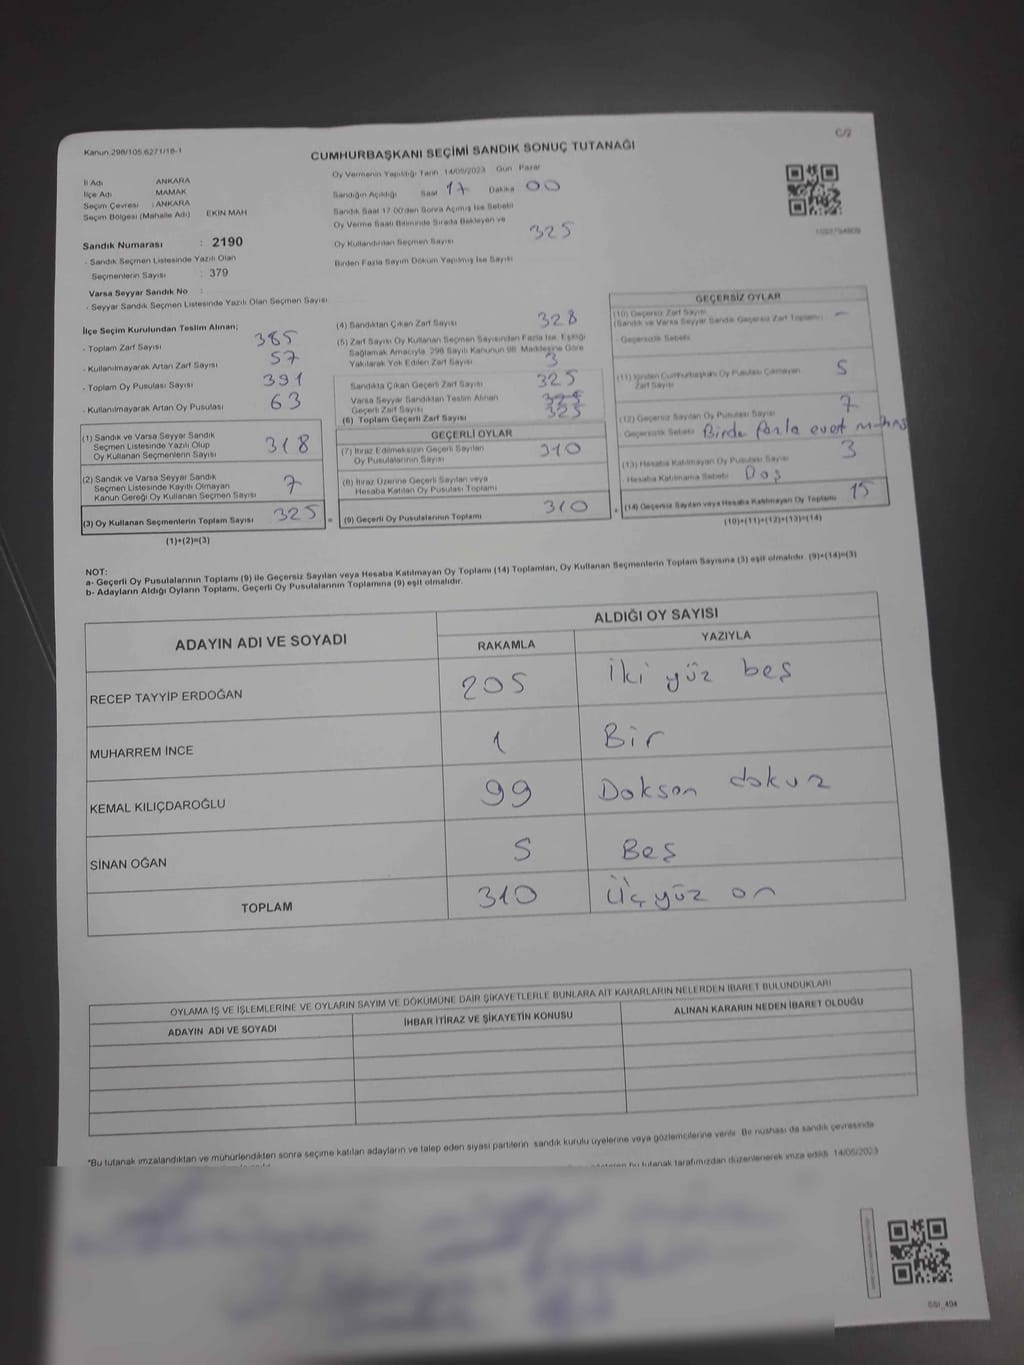 Kanun:298/105,6271/18-1
C/2
CUMHURBAŞKANI SEÇİMİ SANDIK SONUÇ TUTANAĞI
İl Adı ANKARA
İlçe Adı MAMAK
Seçim Çevresi : ANKARA
Seçim Bölgesi (Mahalle Adı) EKİN MAH
Oy Vermenin Yapıldığı Tarih 14/05/2023 Gün Pazar
Sandığın Açıldığı Saat 17 Dakika 00
Sandık Saat 17.00'den Sonra Açılmış İse Sebebi
Oy Verme Saati Bitiminde Sırada Bekleyen ve
Oy Kullandırılan Seçmen Sayısı 325
Birden Fazla Sayım Döküm Yapılmış İse Sayısı
Sandık Numarası : 2190
- Sandık Seçmen Listesinde Yazılı Olan
Seçmenlerin Sayısı : 379
Varsa Seyyar Sandık No :
- Seyyar Sandık Seçmen Listesinde Yazılı Olan Seçmen Sayısı
İlçe Seçim Kurulundan Teslim Alınan;
- Toplam Zarf Sayısı 385
- Kullanılmayarak Artan Zarf Sayısı 57
- Toplam Oy Pusulası Sayısı 391
- Kullanılmayarak Artan Oy Pusulası 63
(1) Sandık ve Varsa Seyyar Sandık
Seçmen Listesinde Yazılı Olup
Oy Kullanan Seçmenlerin Sayısı 318
(2) Sandık ve Varsa Seyyar Sandık
Seçmen Listesinde Kayıtlı Olmayan
Kanun Gereği Oy Kullanan Seçmen Sayısı 7
(3) Oy Kullanan Seçmenlerin Toplam Sayısı 325 =
(1)+(2)=(3)
(4) Sandıktan Çıkan Zarf Sayısı 328
(5) Zarf Sayısı Oy Kullanan Seçmen Sayısından Fazla İse, Eşitliği
Sağlamak Amacıyla, 298 Sayılı Kanunun 98. Maddesine Göre
Yakılarak Yok Edilen Zarf Sayısı 3
Sandıkta Çıkan Geçerli Zarf Sayısı 325
Varsa Seyyar Sandıktan Teslim Alınan
Geçerli Zarf Sayısı 325
(6) Toplam Geçerli Zarf Sayısı 325
GEÇERLİ OYLAR
(7) İtiraz Edilmeksizin Geçerli Sayılan
Oy Pusulalarının Sayısı 310
(8) İtiraz Üzerine Geçerli Sayılan veya
Hesaba Katılan Oy Pusulası Toplamı
(9) Geçerli Oy Pusulalarının Toplamı 310 +
GEÇERSİZ OYLAR
(10) Geçersiz Zarf Sayısı
(Sandık ve Varsa Seyyar Sandık Geçersiz Zarf Toplamı) -
- Geçersizlik Sebebi
(11) İçinden Cumhurbaşkanı Oy Pusulası Çıkmayan
Zarf Sayısı 5
(12) Geçersiz Sayılan Oy Pusulası Sayısı 7
Geçersizlik Sebebi Birde fazla evet
(13) Hesaba Katılmayan Oy Pusulası Sayısı 3
Hesaba Katılmama Sebebi Boş
(14) Geçersiz Sayılan veya Hesaba Katılmayan Oy Toplamı 15
(10)+(11)+(12)+(13)=(14)
NOT:
a- Geçerli Oy Pusulalarının Toplamı (9) ile Geçersiz Sayılan veya Hesaba Katılmayan Oy Toplamı (14) Toplamları, Oy Kullanan Seçmenlerin Toplam Sayısına (3) eşit olmalıdır. (9)+(14)=(3)
b- Adayların Aldığı Oyların Toplamı, Geçerli Oy Pusulalarının Toplamına (9) eşit olmalıdır.
ADAYIN ADI VE SOYADI
ALDIĞI OY SAYISI
RAKAMLA YAZIYLA
RECEP TAYYİP ERDOĞAN 205 İki yüz beş
MUHARREM İNCE 1 Bir
KEMAL KILIÇDAROĞLU 99 Doksan dokuz
SİNAN OĞAN 5 Beş
TOPLAM 310 Üçyüz on
OYLAMA İŞ VE İŞLEMLERİNE VE OYLARIN SAYIM VE DÖKÜMÜNE DAİR ŞİKAYETLERLE BUNLARA AİT KARARLARIN NELERDEN İBARET BULUNDUKLARI
ADAYIN ADI VE SOYADI İHBAR İTİRAZ VE ŞİKAYETİN KONUSU ALINAN KARARIN NEDEN İBARET OLDUĞU
*Bu tutanak imzalandıktan ve mühürlendikten sonra seçime katılan adayların ve talep eden siyasi partilerin sandık kurulu üyelerine veya gözlemcilerine verilir. Bir nüshası da sandık çevresinde
bu tutanak tarafımızdan düzenlenerek imza edildi. 14/05/2023
SSI_494